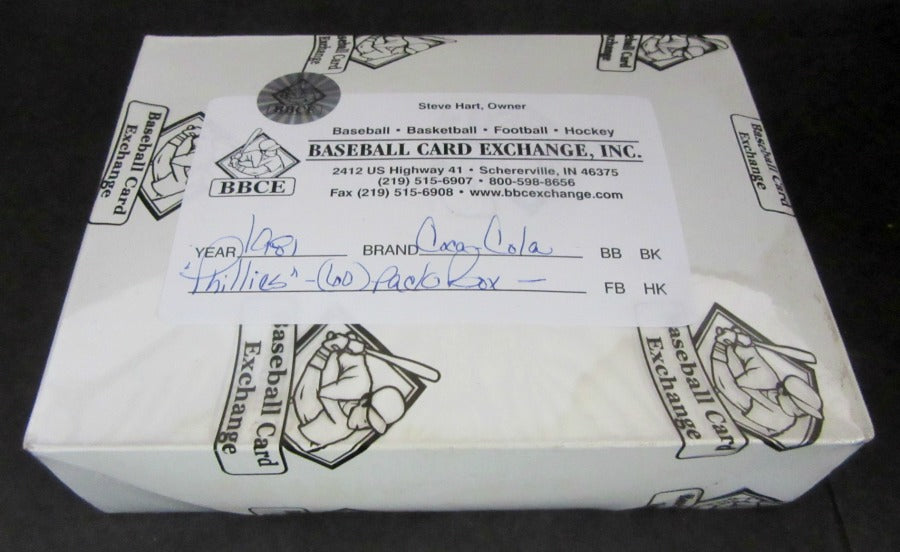 Baseball Card
Exchange
Baseball Card
Exchange
Baseball Card
Exchange
Baseball Card
Exchange
BBCE
Steve Hart, Owner
Baseball • Basketball • Football • Hockey
BASEBALL CARD EXCHANGE, INC.
BBCE
2412 US Highway 41 • Schererville, IN 46375
(219) 515-6907 • 800-598-8656
Fax (219) 515-6908 • www.bbcexchange.com
YEAR 1981 BRAND Coca-Cola BB BK
"Phillies" - (60) pack box - FB HK
Baseball Card
Exchange
Baseball Card
Exchange